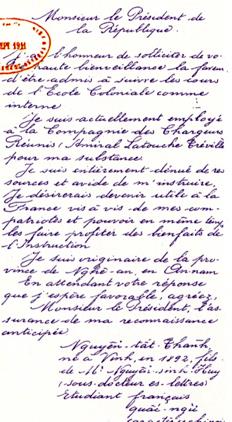 Monsieur le Président de
la République.
l'honneur de solliciter de vo-
haute bienveillance la faveur
d'être admis à suivre les cours
de l'Ecole Coloniale comme
interne
Je suis actuellement employé
à la Compagnie des Chargeurs
Réunis, Amiral Latouche Tréville
pour ma substance
Je suis entièrement dénué de res
sources et avide de m'instruire.
Je désirerais devenir utile à la
France vis à vis de mes com-
patriotes et pouvoir en même temps
les faire profiter des bienfaits de
l'Instruction
Je suis originaire de la pro-
vince de Nghê-an, en Annam
En attendant votre réponse
que j'espère favorable, agréez,
Monsieur le Président, l'as-
surance de ma reconnaissance
anticipée
Nguyên-tât-Thanh,
né à Vinh, en 1892, fils
de Mr Nguyên-sinh-Huy
(sous-docteur ès-lettres)
Etudiant français
quốc-ngữ
1911